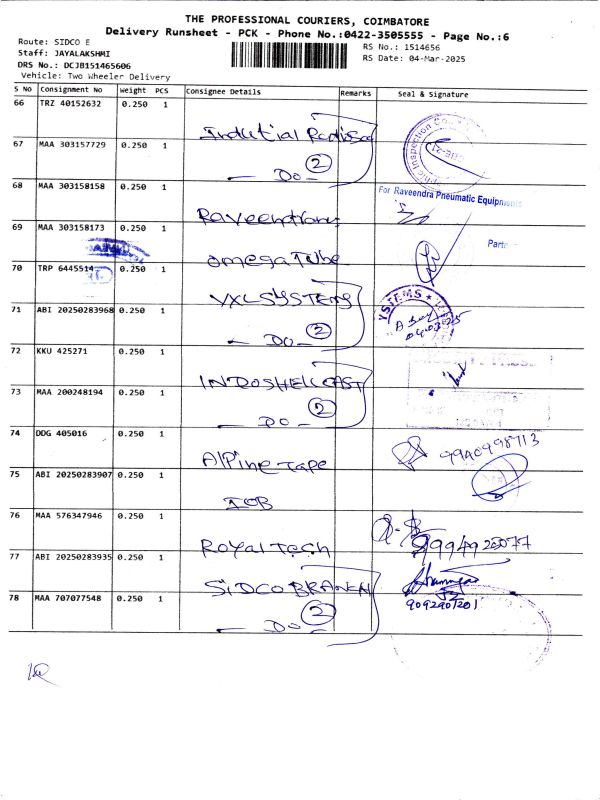 THE PROFESSIONAL COURIERS, COIMBATORE
Delivery Runsheet - PCK - Phone No.:0422-3505555 - Page No.:6
Route: SIDCO E
RS No.: 1514656
Staff: JAYALAKSHMI
RS Date: 04-Mar-2025
DRS No.: DCJB151465606
Vehicle: Two Wheeler Delivery
S No Consignment No Weight PCS Consignee Details Remarks Seal & Signature
66 TRZ 40152632 0.250 1
Indutial Radisso
67 MAA 303157729 0.250 1
(2)
— DO —
68 MAA 303158158 0.250 1
For Raveendra Pneumatic Equipments
Raveentrans
69 MAA 303158173 0.250 1
Partner
omega Tube
70 TRP 6445514 0.250 1
VXL SYSTEMS
YSTEMS
71 ABI 20250283968 0.250 1
(2)
— DO —
72 KKU 425271 0.250 1
INDOSHELL CAST
73 MAA 200248194 0.250 1
(2)
— DO —
74 DDG 405016 0.250 1
9940998713
Alpine Tape
75 ABI 20250283907 0.250 1
IOB
76 MAA 576347946 0.250 1
Royal Tech
77 ABI 20250283935 0.250 1
SIDCO BRANCH
78 MAA 707077548 0.250 1
9092907201
(2)
— DO —